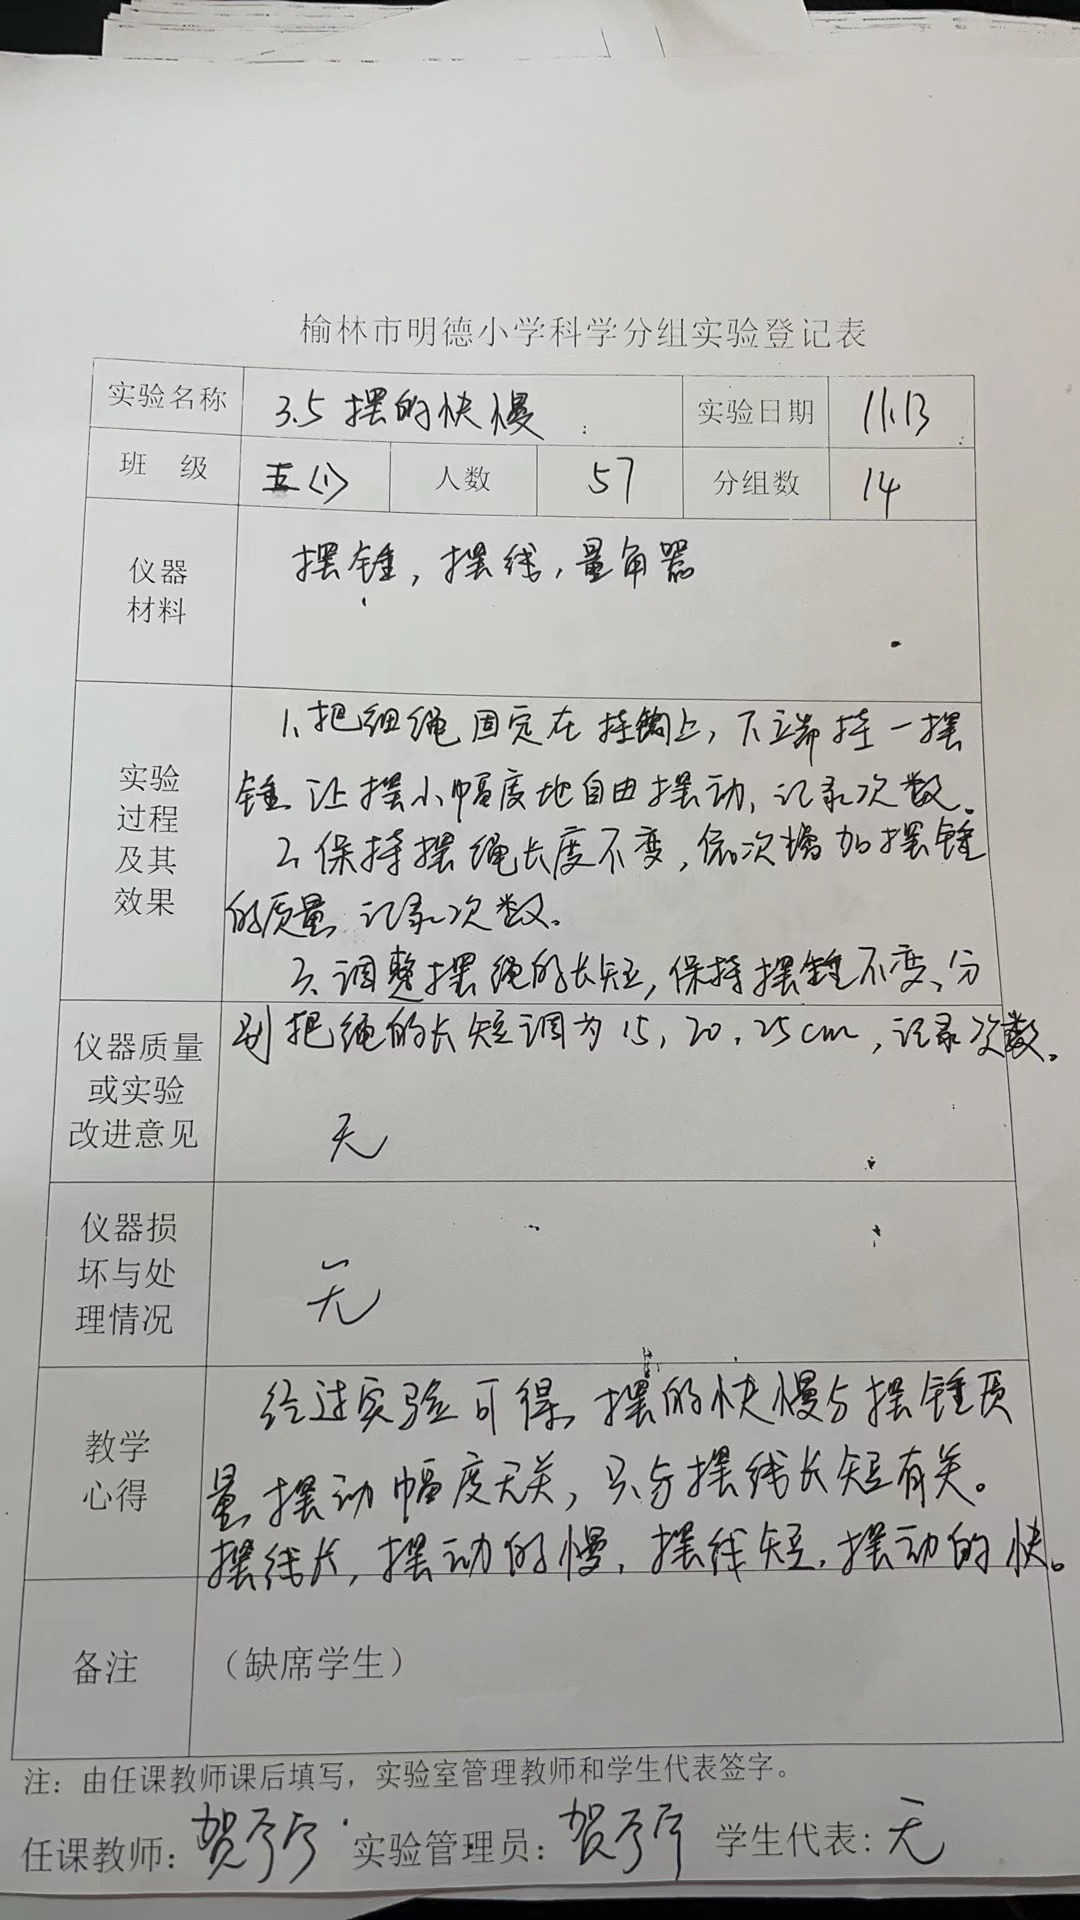 榆林市明德小学科学分组实验登记表
实验名称 3.5 摆的快慢 实验日期 11.13
班 级 五(1) 人数 57 分组数 14
仪器
材料
摆锤，摆线，量角器
实验
过程
及其
效果
1、把细绳固定在挂钩上，下端挂一摆
锤 让摆小幅度地自由摆动，记录次数。
2、保持摆绳长度不变，依次增加摆锤
的质量 记录次数。
3、调整摆绳的长短，保持摆锤不变、分
别把绳的长短调为15，20，25cm，记录次数。
仪器质量
或实验
改进意见
无
仪器损
坏与处
理情况
无
教学
心得
经过实验可得 摆的快慢与摆锤质
量 摆动幅度无关，只与摆线长短有关。
摆线长，摆动的慢，摆线短，摆动的快。
备注
（缺席学生）
注：由任课教师课后填写，实验室管理教师和学生代表签字。
任课教师：贺 实验管理员：贺 学生代表：无